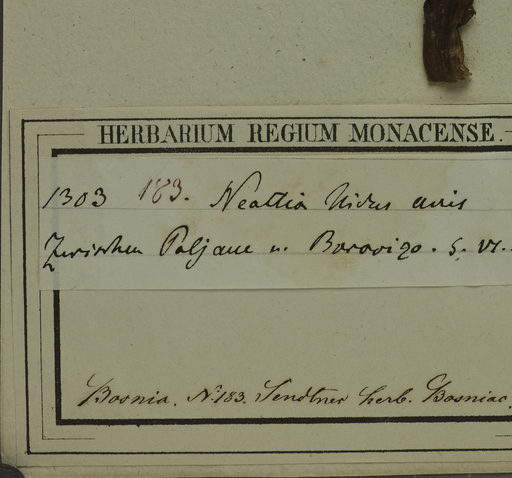 HERBARIUM REGIUM MONACENSE.
1303 183. Neottia Nidus avis
Zwischen Poljane u. Borovizo. 5. VI.
Bosnia. N. 183. Sendtner herb. Bosniac.